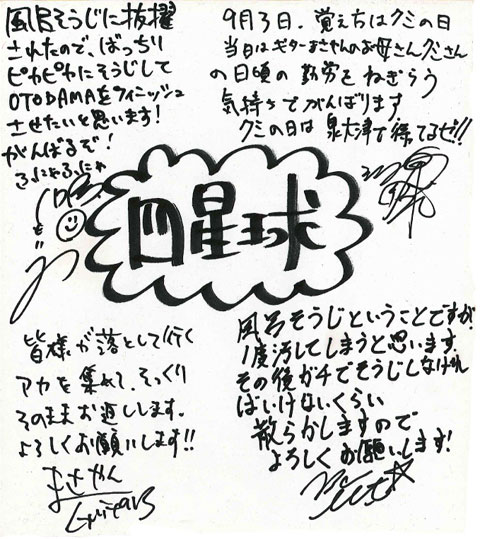 風呂そうじに抜擢
されたので、ばっちり
ピカピカにそうじして
OTODAMAをフィニッシュ
させたいと思います!
がんばるぞ!
9月3日、覚え方はクミの日
当日はギターまさやんのお母さんクミさん
の日頃の勤労をねぎらう
気持ちでがんばります
クミの日は泉大津で待ってるぜ!!
四星球
皆様が落として行く
アカを集めて、そっくり
そのままお返しします。
よろしくお願いします!!
まさやん
Guitars
風呂そうじということですが、
1度汚してしまうと思います。
その後ガチでそうじしなければ
ばいけないくらい
散らかしますので
よろしくお願いします!